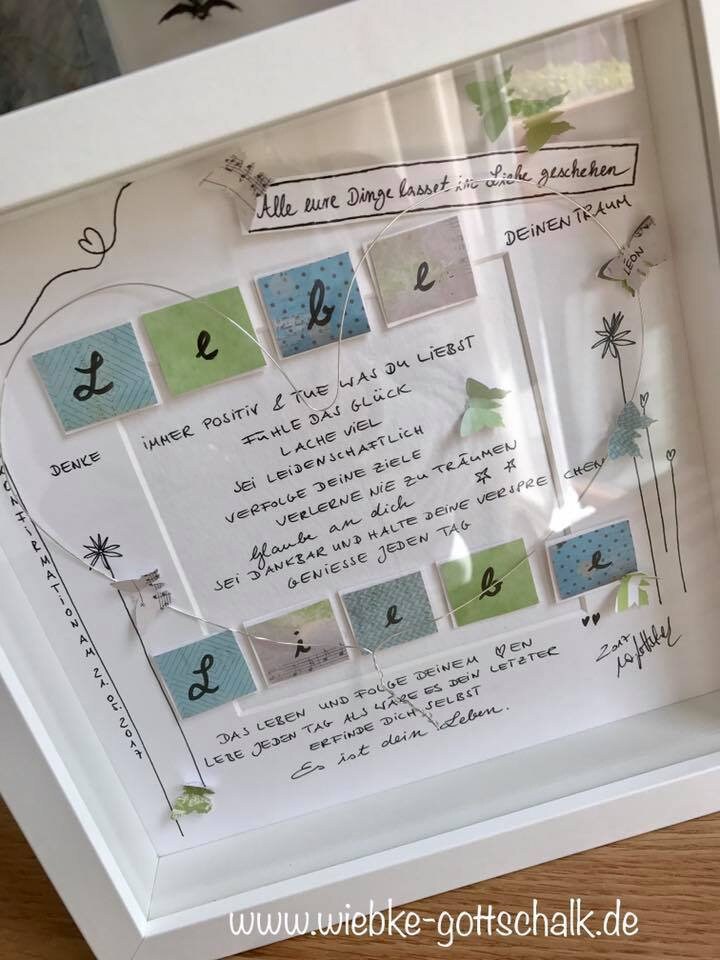 Alle eure Dinge lasset in Liebe geschehen
Lebe
DEINEN TRAUM
LEON
DENKE IMMER POSITIV & TUE WAS DU LIEBST
FÜHLE DAS GLÜCK
LACHE VIEL
SEI LEIDENSCHAFTLICH
VERFOLGE DEINE ZIELE
VERLERNE NIE ZU TRÄUMEN
Glaube an dich
SEI DANKBAR UND HALTE DEINE VERSPRECHEN
GENIESSE JEDEN TAG
Liebe
DAS LEBEN UND FOLGE DEINEM ♡EN
LEBE JEDEN TAG ALS WÄRE ES DEIN LETZTER
ERFINDE DICH SELBST
Es ist dein Leben.
KONFIRMATION AM 21.05.2017
2017
www.wiebke-gottschalk.de